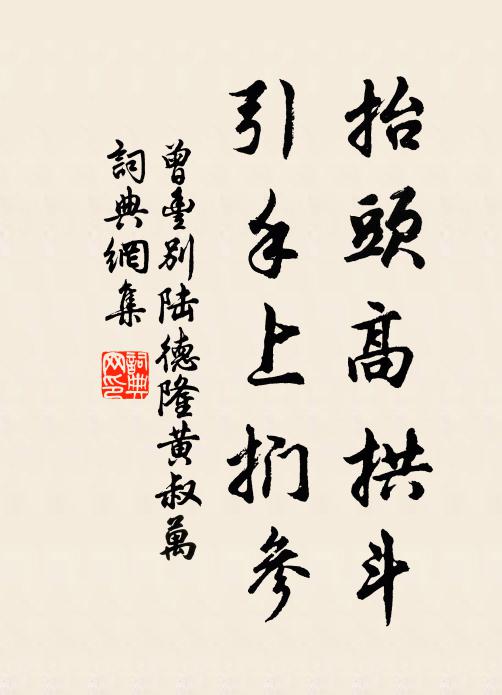 抬頭高拱斗
引手上捫參
曾豐別陸德隆黃叔萬
詞典網集
詞典網印